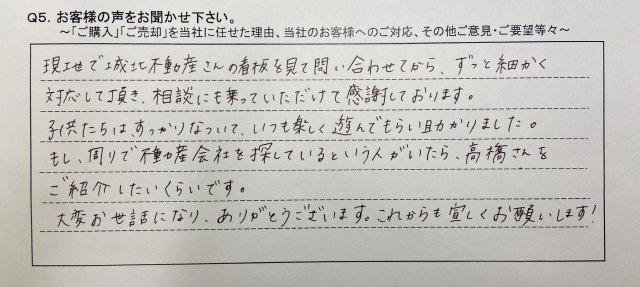 Q5. お客様の声をお聞かせ下さい。
～「ご購入」「ご売却」を当社に任せた理由、当社のお客様へのご対応、その他ご意見・ご要望等々～
現地で城北不動産さんの看板を見て問い合わせてから、ずっと細かく
対応して頂き、相談にも乗っていただけて感謝しております。
子供たちはすっかりなついて、いつも楽しく遊んでもらい助かりました。
もし、周りで不動産会社を探しているという人がいたら、高橋さんを
ご紹介したいくらいです。
大変お世話になり、ありがとうございます。これからも宜しくお願いします!